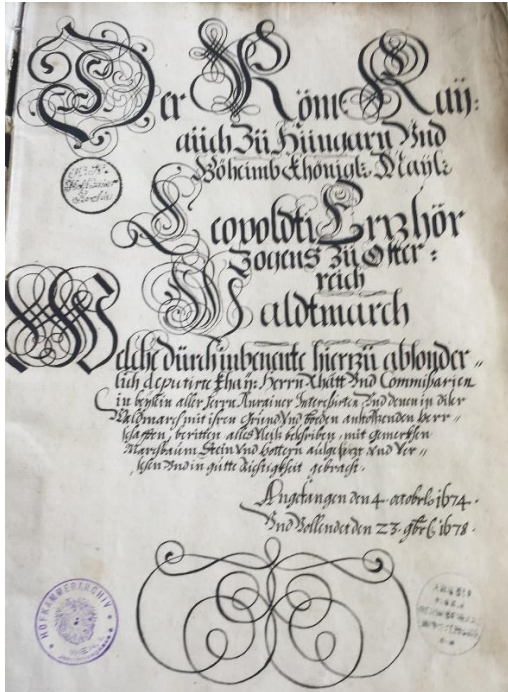 Der Röm: Kaÿ:
auch Zu Hungarn Vnd
Böheimb Khönigl: Maÿt:
Leopoldti Ertzhör
Zogens zu Oster:
reich
Waldtmarch
Welche durch inbenente hierzu absonder„
lich deputirte Khaÿ: Herrn Räth Vnd Commissarien
in beysein aller Herrn Anrainer Interessirten Vnd denen in diser
Waldmarch mit ihren Grund Vnd boden anstossenden Herr„
schafften, beritten alles Fleiß beschriben, mit gemerkhen
Marchbaum, Stein Vnd Hottern außgesezt Vnd Ver„
sehen Vnd in gutte Richtigkeit gebracht.
Angefangen den 4. octobris 1674.
Vnd Vollendet den 23. 9bris 1678.
K. K.
Hofkammer
Archiv
HOFKAMMERARCHIV
WIEN